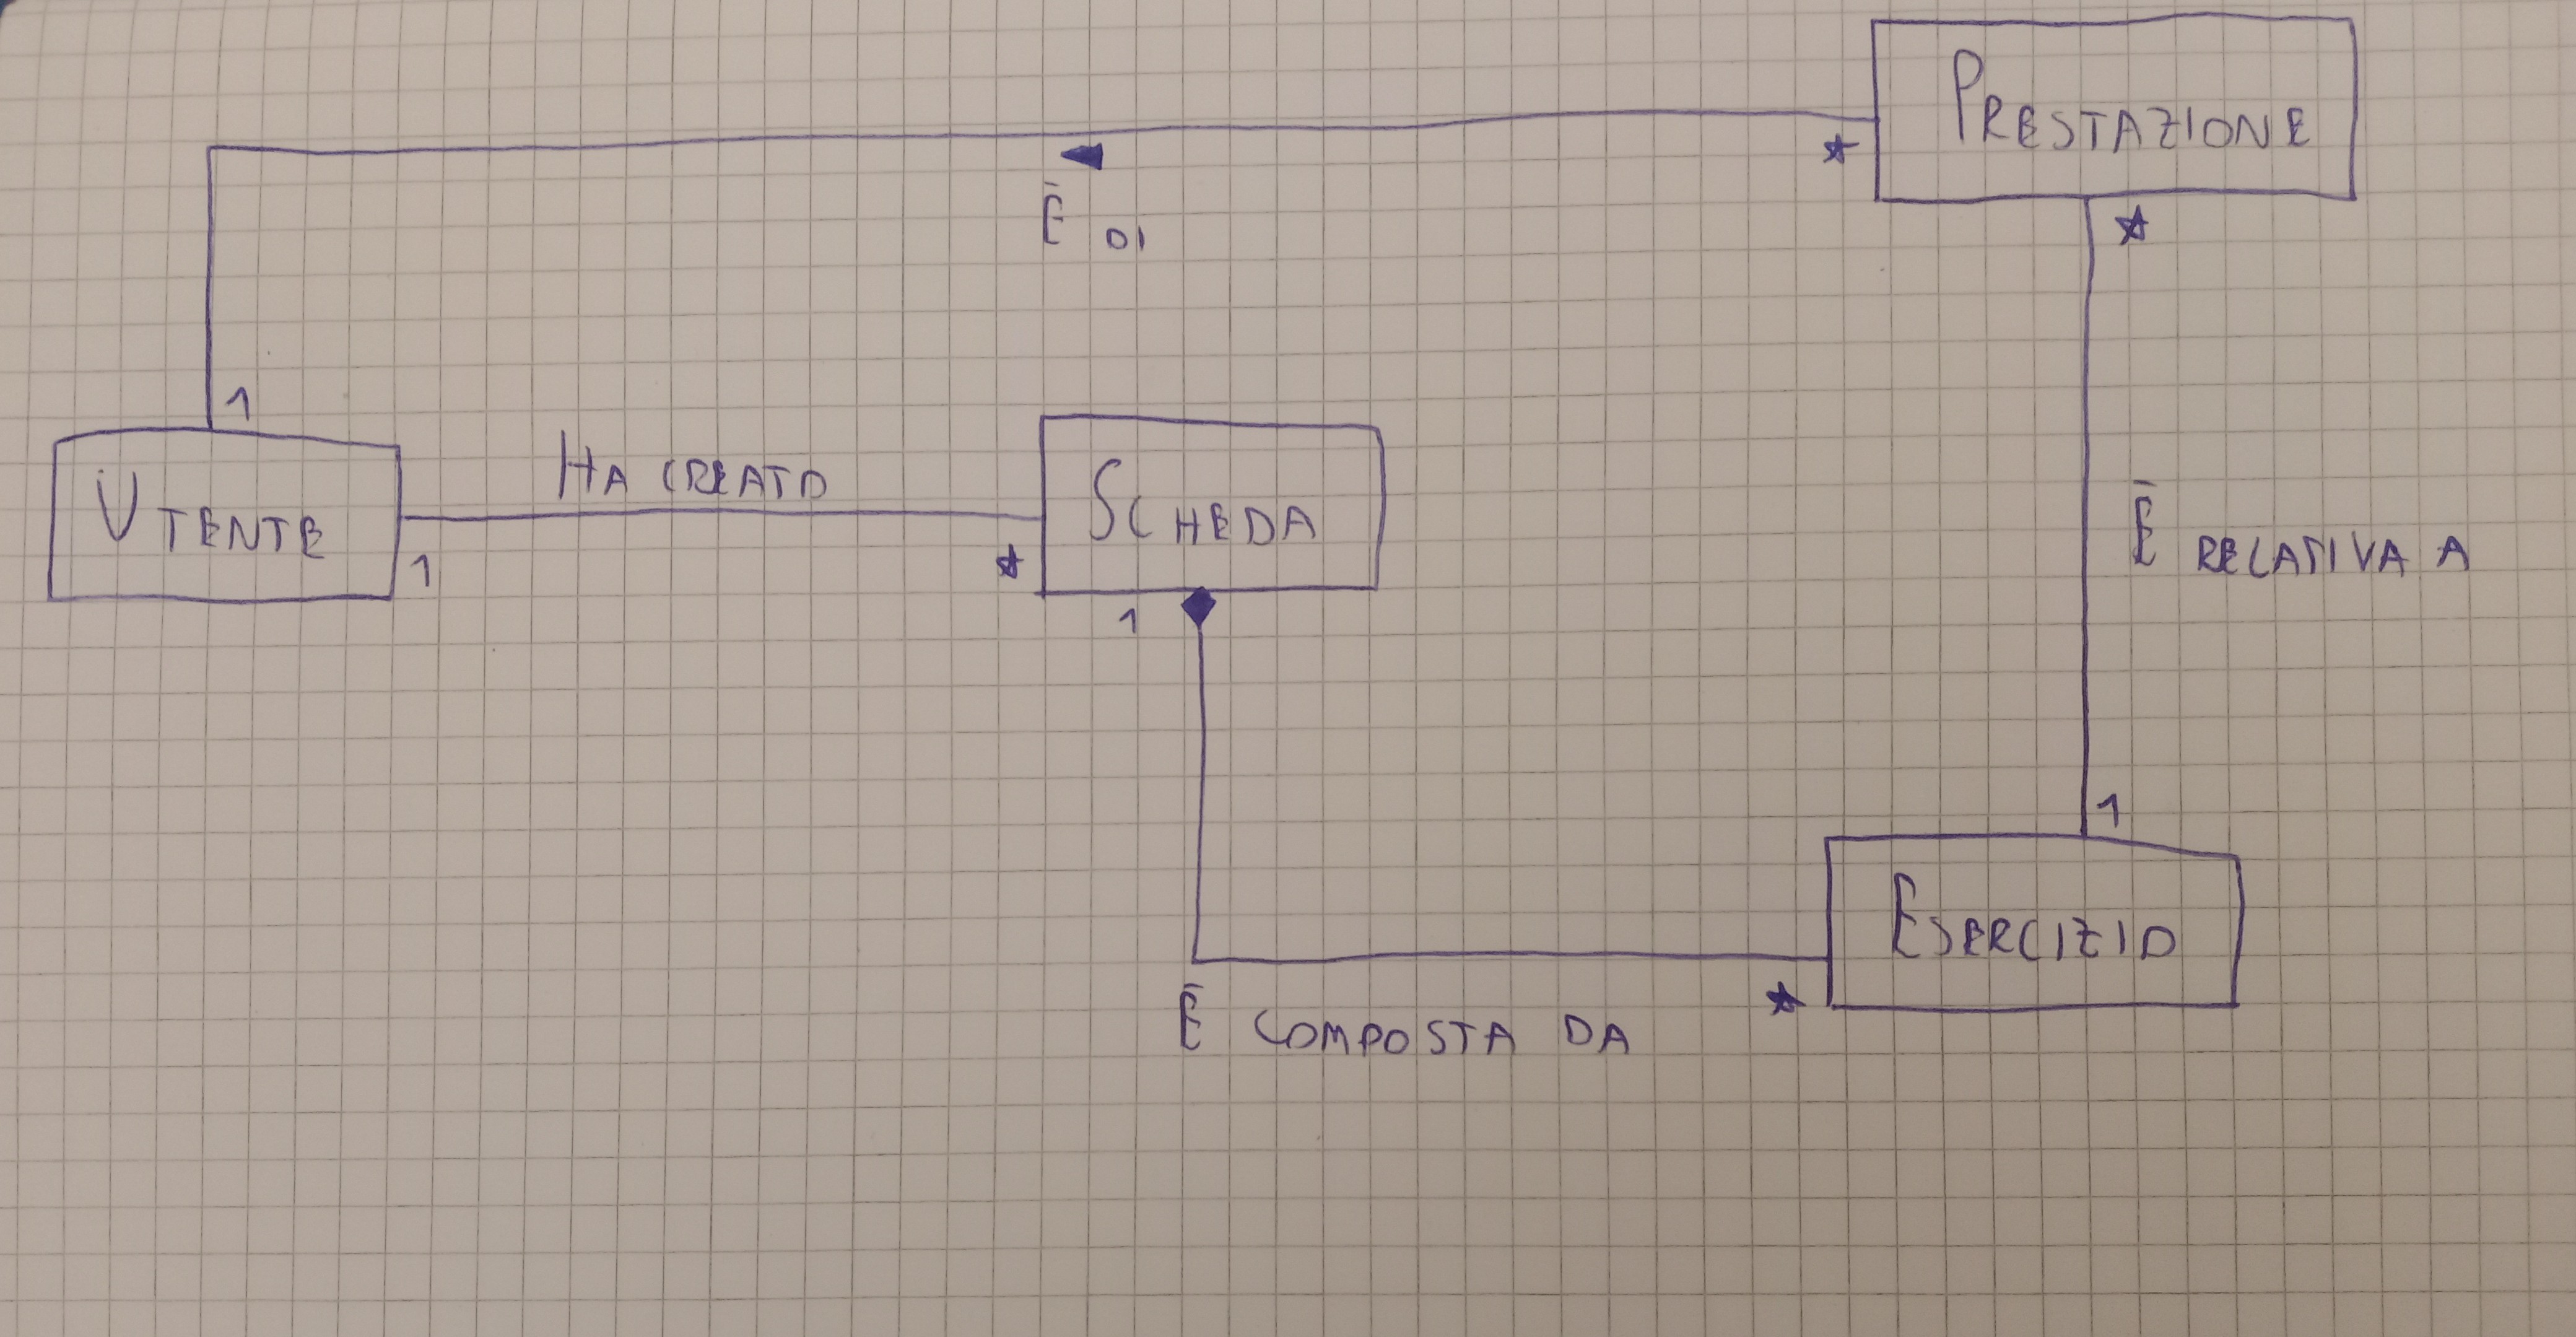 PRESTAZIONE
*
*
È DI
1
UTENTE
HA CREATO
SCHEDA
1
*
1
È RELATIVA A
1
ESERCIZIO
*
È COMPOSTA DA